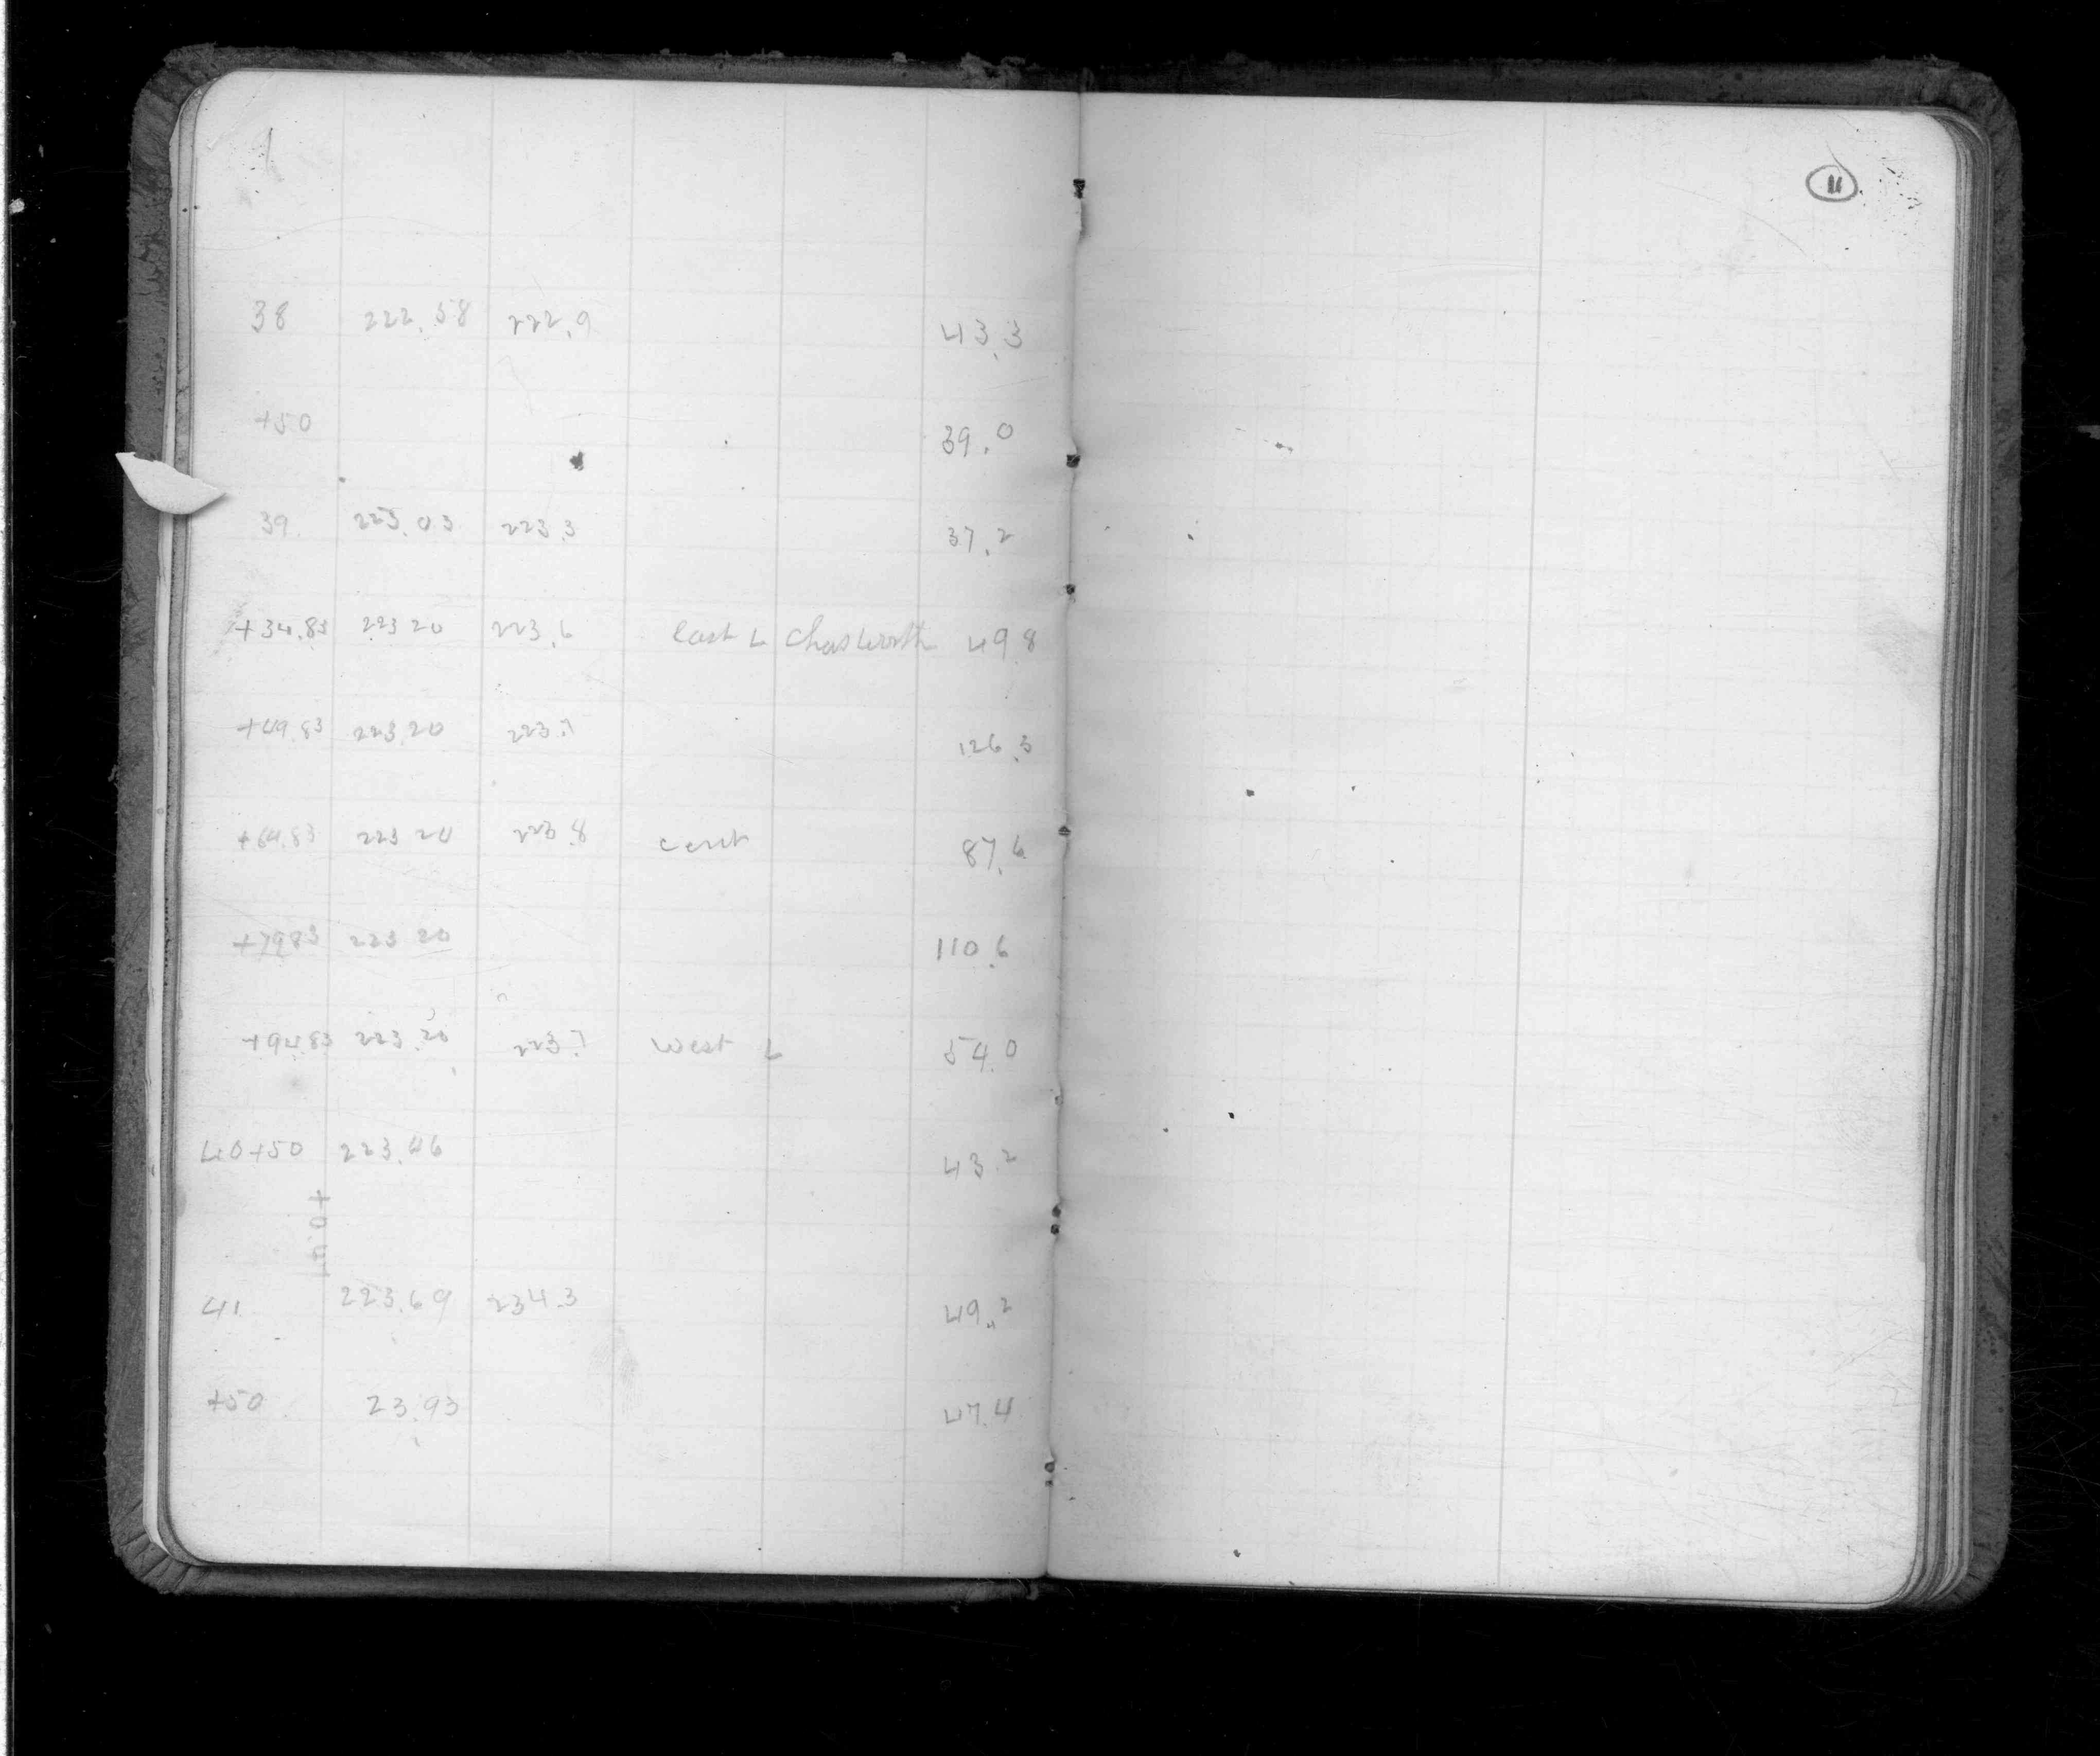 11
38 222.58 222.9 43.3
+50 39.0
39 223.03 223.3 37.2
+34.83 223 20 223.6 East L Chasworth 49.8
+49.83 223.20 223.7 126.3
+64.83 223 20 223.8 cent 87.6
+79 83 223 20 110.6
+94.83 223.20 223.7 West L 54.0
40+50 223.46 43.2
+0.41
41 223.69 234.3 49.2
+50 23.93 47.4